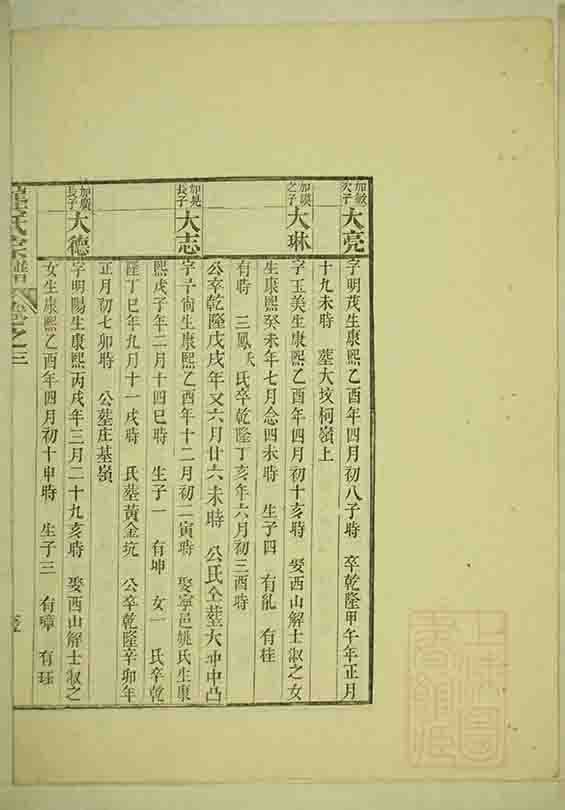 加敏次子 大亮 字明茂生康熙乙酉年四月初八子時 卒乾隆甲午年正月
十九未時 墓大坟柯嶺上
之子 大琳 字玉美生康熙乙酉年四月初十亥時 娶西山解士淑之女
生康熙癸未年七月念四未時 生子四 有能 有桂
有時 三鳳 氏卒乾隆丁亥年六月初三酉時
公卒乾隆戊戌年又六月廿六未時 公氏仝墓大冲中凸
長子 大志 字尚生康熙乙酉年十二月初二寅時 娶寧邑姚氏生康
熙戊子年二月十四巳時 生子一 有坤 女一 氏卒乾
隆丁巳年九月十一戌時 氏墓黃金坑 公卒乾隆辛卯年
正月初七卯時 公墓庄基嶺
加廣長子 大德 字明陽生康熙丙戌年三月二十九亥時 娶西山解士淑之
女生康熙乙酉年四月初十申時 生子三 有璋 有珏
氏宗譜 卷之三